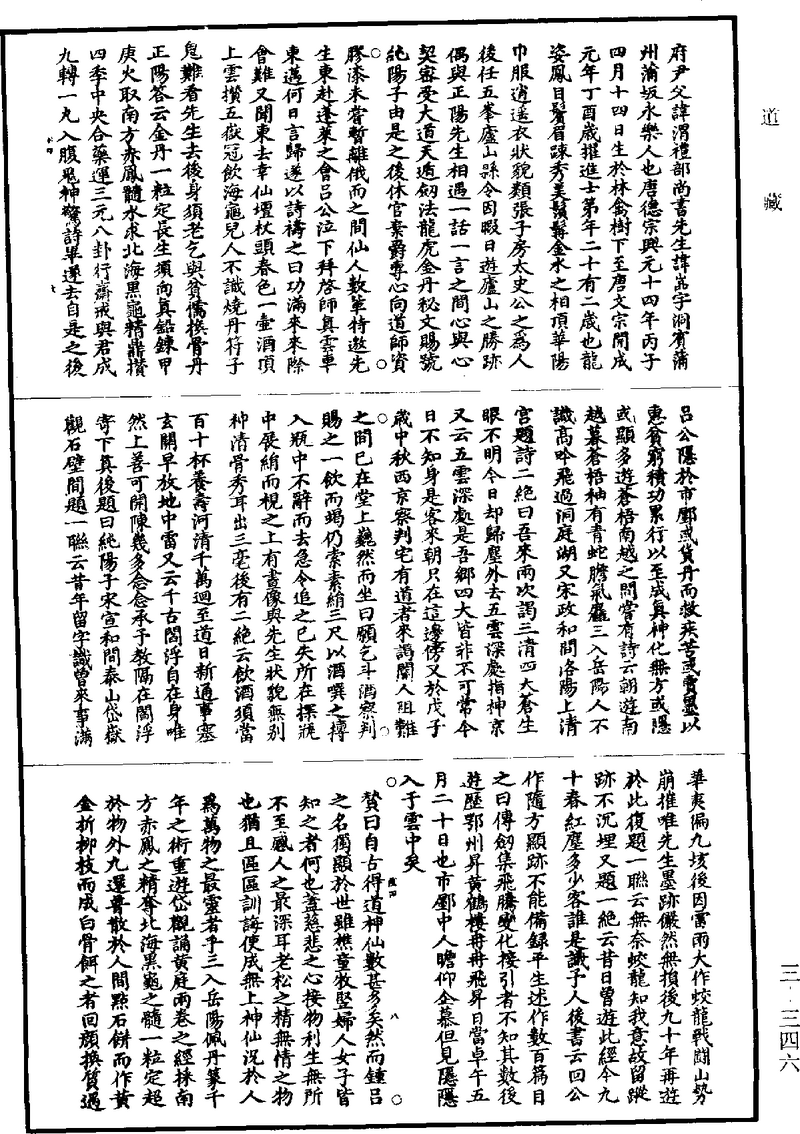 道藏
府尹父諱渭禮部尚書先生諱嵓字洞賓蒲
州蒲坂永樂人也唐德宗興元十四年丙子
四月十四日生於林禽樹下至唐文宗開成
元年丁酉歲擢進士第年二十有二歲也龍
姿鳳目鬢眉踈秀美鬚髯金水之相頂華陽
巾服逍遥衣狀貌類張子房太史公之爲人
後任五峯廬山縣令因暇日遊廬山之勝跡
偶與正陽先生相遇一話一言之間心與心
契密受大道天遁劒法龍虎金丹秘文賜號
純陽子由是之後休官棄爵專心向道師資
膠漆未嘗暫離俄而之間仙人數輩特邀先
生東赴蓬萊之會吕公泣下拜啓師真雲車
東邁何日言歸遂以詩禱之曰功滿來來際
會難又聞東去幸仙壇杖頭春色一壺酒頂
上雲攢五嶽冠飲海龜兒人不識燒丹符子
鬼難看先生去後身須老乞與貧儒換骨丹
正陽答云金丹一粒定長生須向真鉛鍊甲
庚火取南方赤鳳髓水求北海黑龜精鼎攢
四季中央合藥運三元八卦行齋戒與君成
九轉一丸入腹鬼神驚詩畢遂去自是之後
吕公隱於市鄽或貨丹而救疾苦或賣墨以
惠貧窮積功累行以至成真神化無方或隱
或顯多遊蒼梧南越之間嘗有詩云朝遊南
越暮蒼梧袖有青蛇膽氣麤三入岳陽人不
識高吟飛過洞庭湖又宋政和間洛陽上清
宫題詩二絶曰吾來兩次謁三清四大蒼生
眼不明今日却歸塵外去五雲深處指神京
又云五雲深處是吾鄉四大皆非不可常今
日不知身是客來朝只在這邊傍又於戊子
歲中秋西京察判宅有道者來謁閽人阻難
之間已在堂上巍然而坐曰願乞斗酒察判
賜之一飲而竭仍索素絹三尺以酒噀之摶
入瓶中不辭而去急令追之已失所在探瓶
中展絹而視之上有畫像與先生狀貌無别
神清骨秀耳出三毫後有二絶云飲酒須當
百十杯養壽河清千萬迴至道日新通事塞
玄關早放地中雷又云千古閻浮自在身唯
然上善可開陳幾多念念承予教隔在閻浮
寄下真後題曰純陽子宋宣和間泰山岱嶽
觀石壁間題一聯云昔年留字識曾來事滿
華夷徧九垓後因雷雨大作蛟龍戰鬪山勢
崩摧唯先生墨跡儼然無損後九十年再遊
於此復題一聯云無奈蛟龍知我意故留蹤
跡不沉埋又題一絶云昔日曾遊此經今九
十春紅塵多少客誰是識予人後書云回公
作隨方顯跡不能備録平生述作數百篇目
之曰傳劒集飛騰變化接引者不知其數後
遊歷鄂州昇黄鶴樓冉冉飛昇日當卓午五
月二十日也市鄽中人瞻仰企慕但見隱隱
入于雲中矣
贊曰自古得道神仙數甚多矣然而鍾吕
之名獨顯於世雖樵童牧竪婦人女子皆
知之者何也蓋慈悲之心接物利生無所
不至感人之最深耳老松之精無情之物
也猶且區區訓誨使成無上神仙況於人
爲萬物之最靈者乎三入岳陽佩丹篆千
年之術重遊岱觀誦黄庭兩卷之經採南
方赤鳳之精奪北海黑龜之髓一粒定超
於物外九還普散於人間點石餅而作黄
金折柳枝而成白骨餌之者回顔換質遇
三-三四六